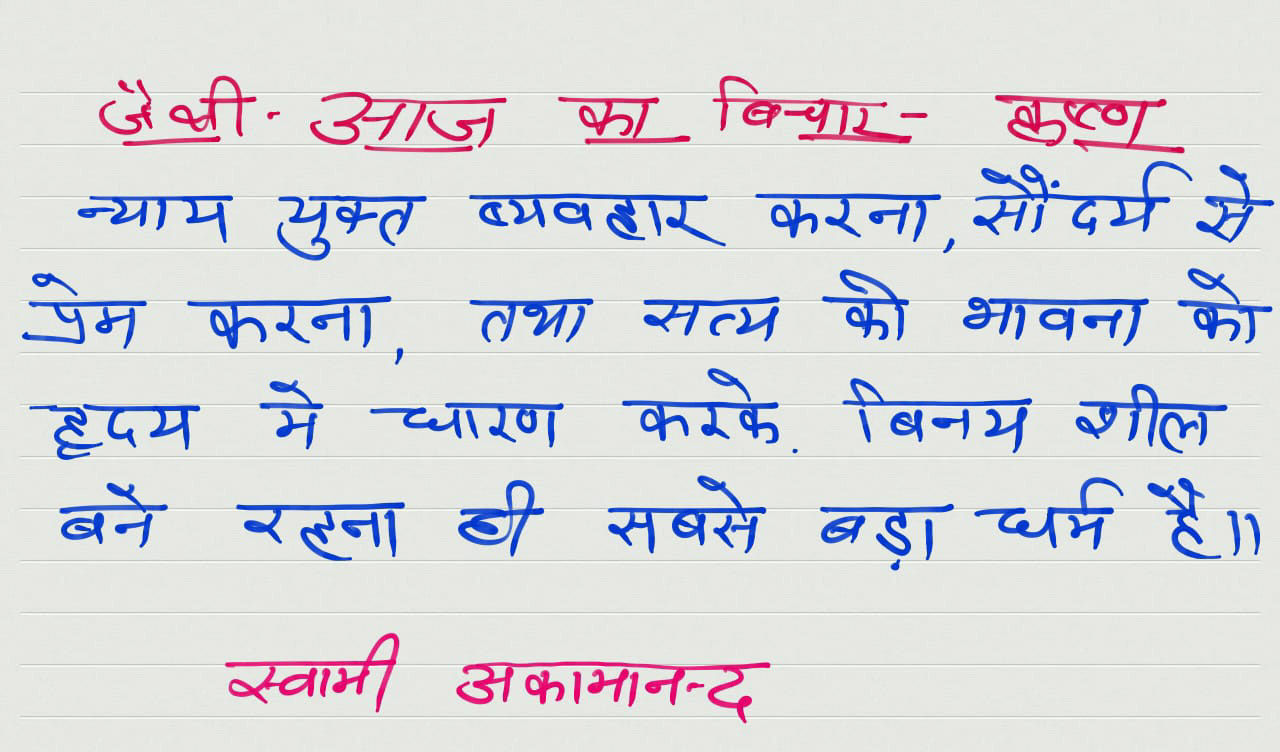 जैश्री. आज का बिचार- कृष्ण
न्याय युक्त ब्यवहार करना, सौंदर्य से
प्रेम करना, तथा सत्य की भावना को
हृदय मे धारण करके. बिनय शील
बने रहना ही सबसे बड़ा धर्म है॥
स्वामी अकामानन्द